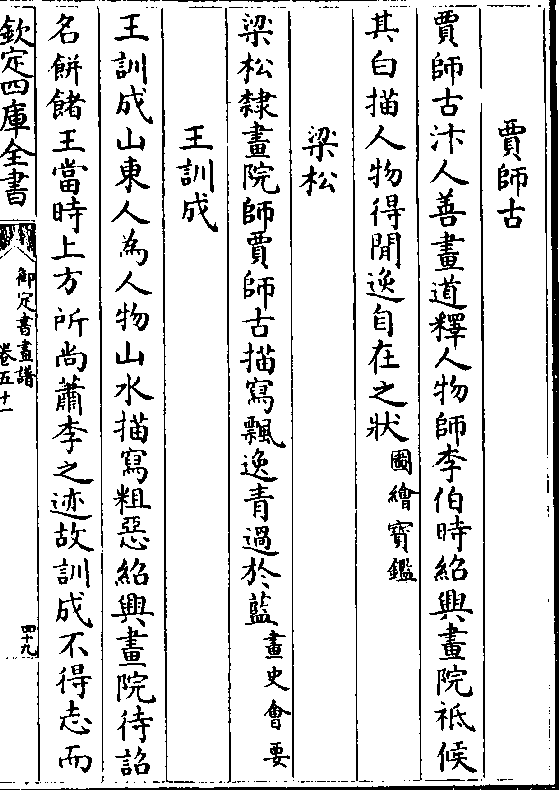 賈師古
賈師古汴人善畫道釋人物師李伯時紹興畫院祗候
其白描人物得閒逸自在之狀圖繪寶鑑
梁松
梁松隸畫院師賈師古描寫飄逸青過於藍畫史會要
王訓成
王訓成山東人為人物山水描寫粗惡紹興畫院待詔
名餅餖王當時上方所尚蕭李之迹故訓成不得志而
欽定四庫全書
御定書畫譜
卷五十一
四十九